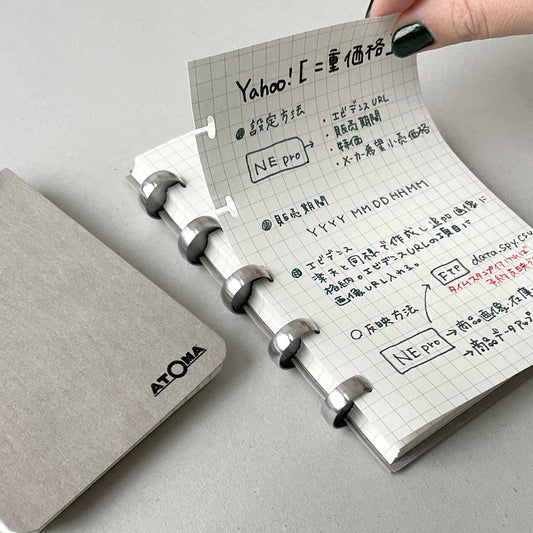 Yahoo!「二重価格」
●設定方法
NE pro
・エビデンスURL
・販売期間
・特価
・メーカー希望小売価格
●販売期間
YYYY MM DD HH MM
●エビデンス
楽天と同様で作成し追加画像に
格納。エビデンスURLの項目に
画像URL入れる。
FTP
data_spy.csv
○反映方法
NE pro
→商品画像,在庫
→商品データアップ
ATOMA